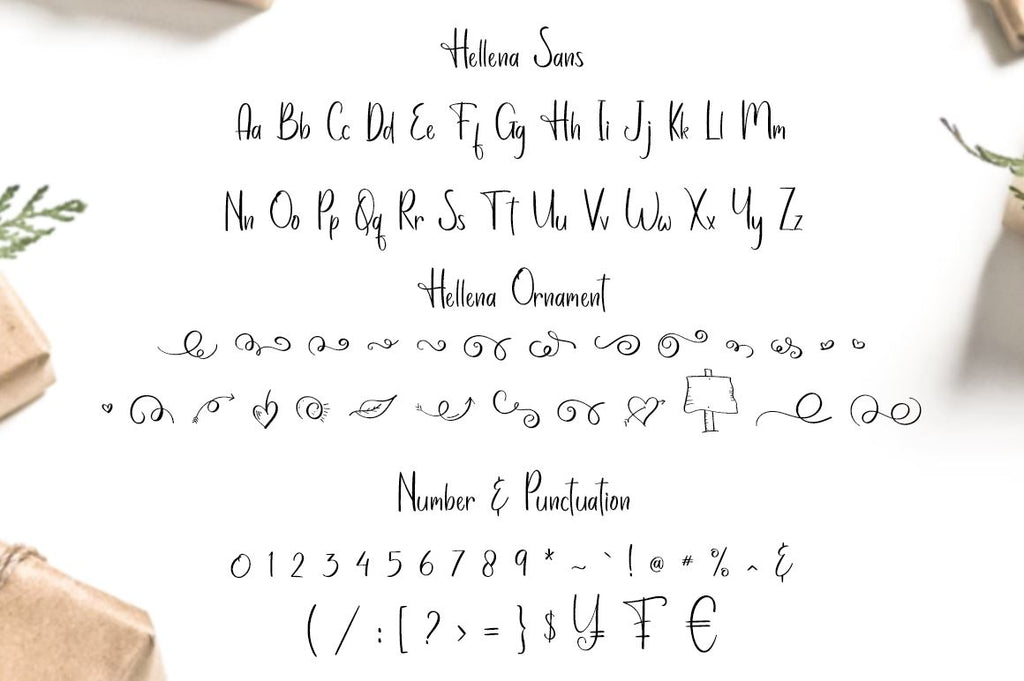 Hellena Sans
Aa Bb Cc Dd Ee Ff Gg Hh Ii Jj Kk Ll Mm
Nn Oo Pp Qq Rr Ss Tt Uu Vv Ww Xx Yy Zz
Hellena Ornament
Number & Punctuation
0 1 2 3 4 5 6 7 8 9 * ~ ` ! @ # % ^ &
( / : [ ? > = } $ ¥ ₣ €